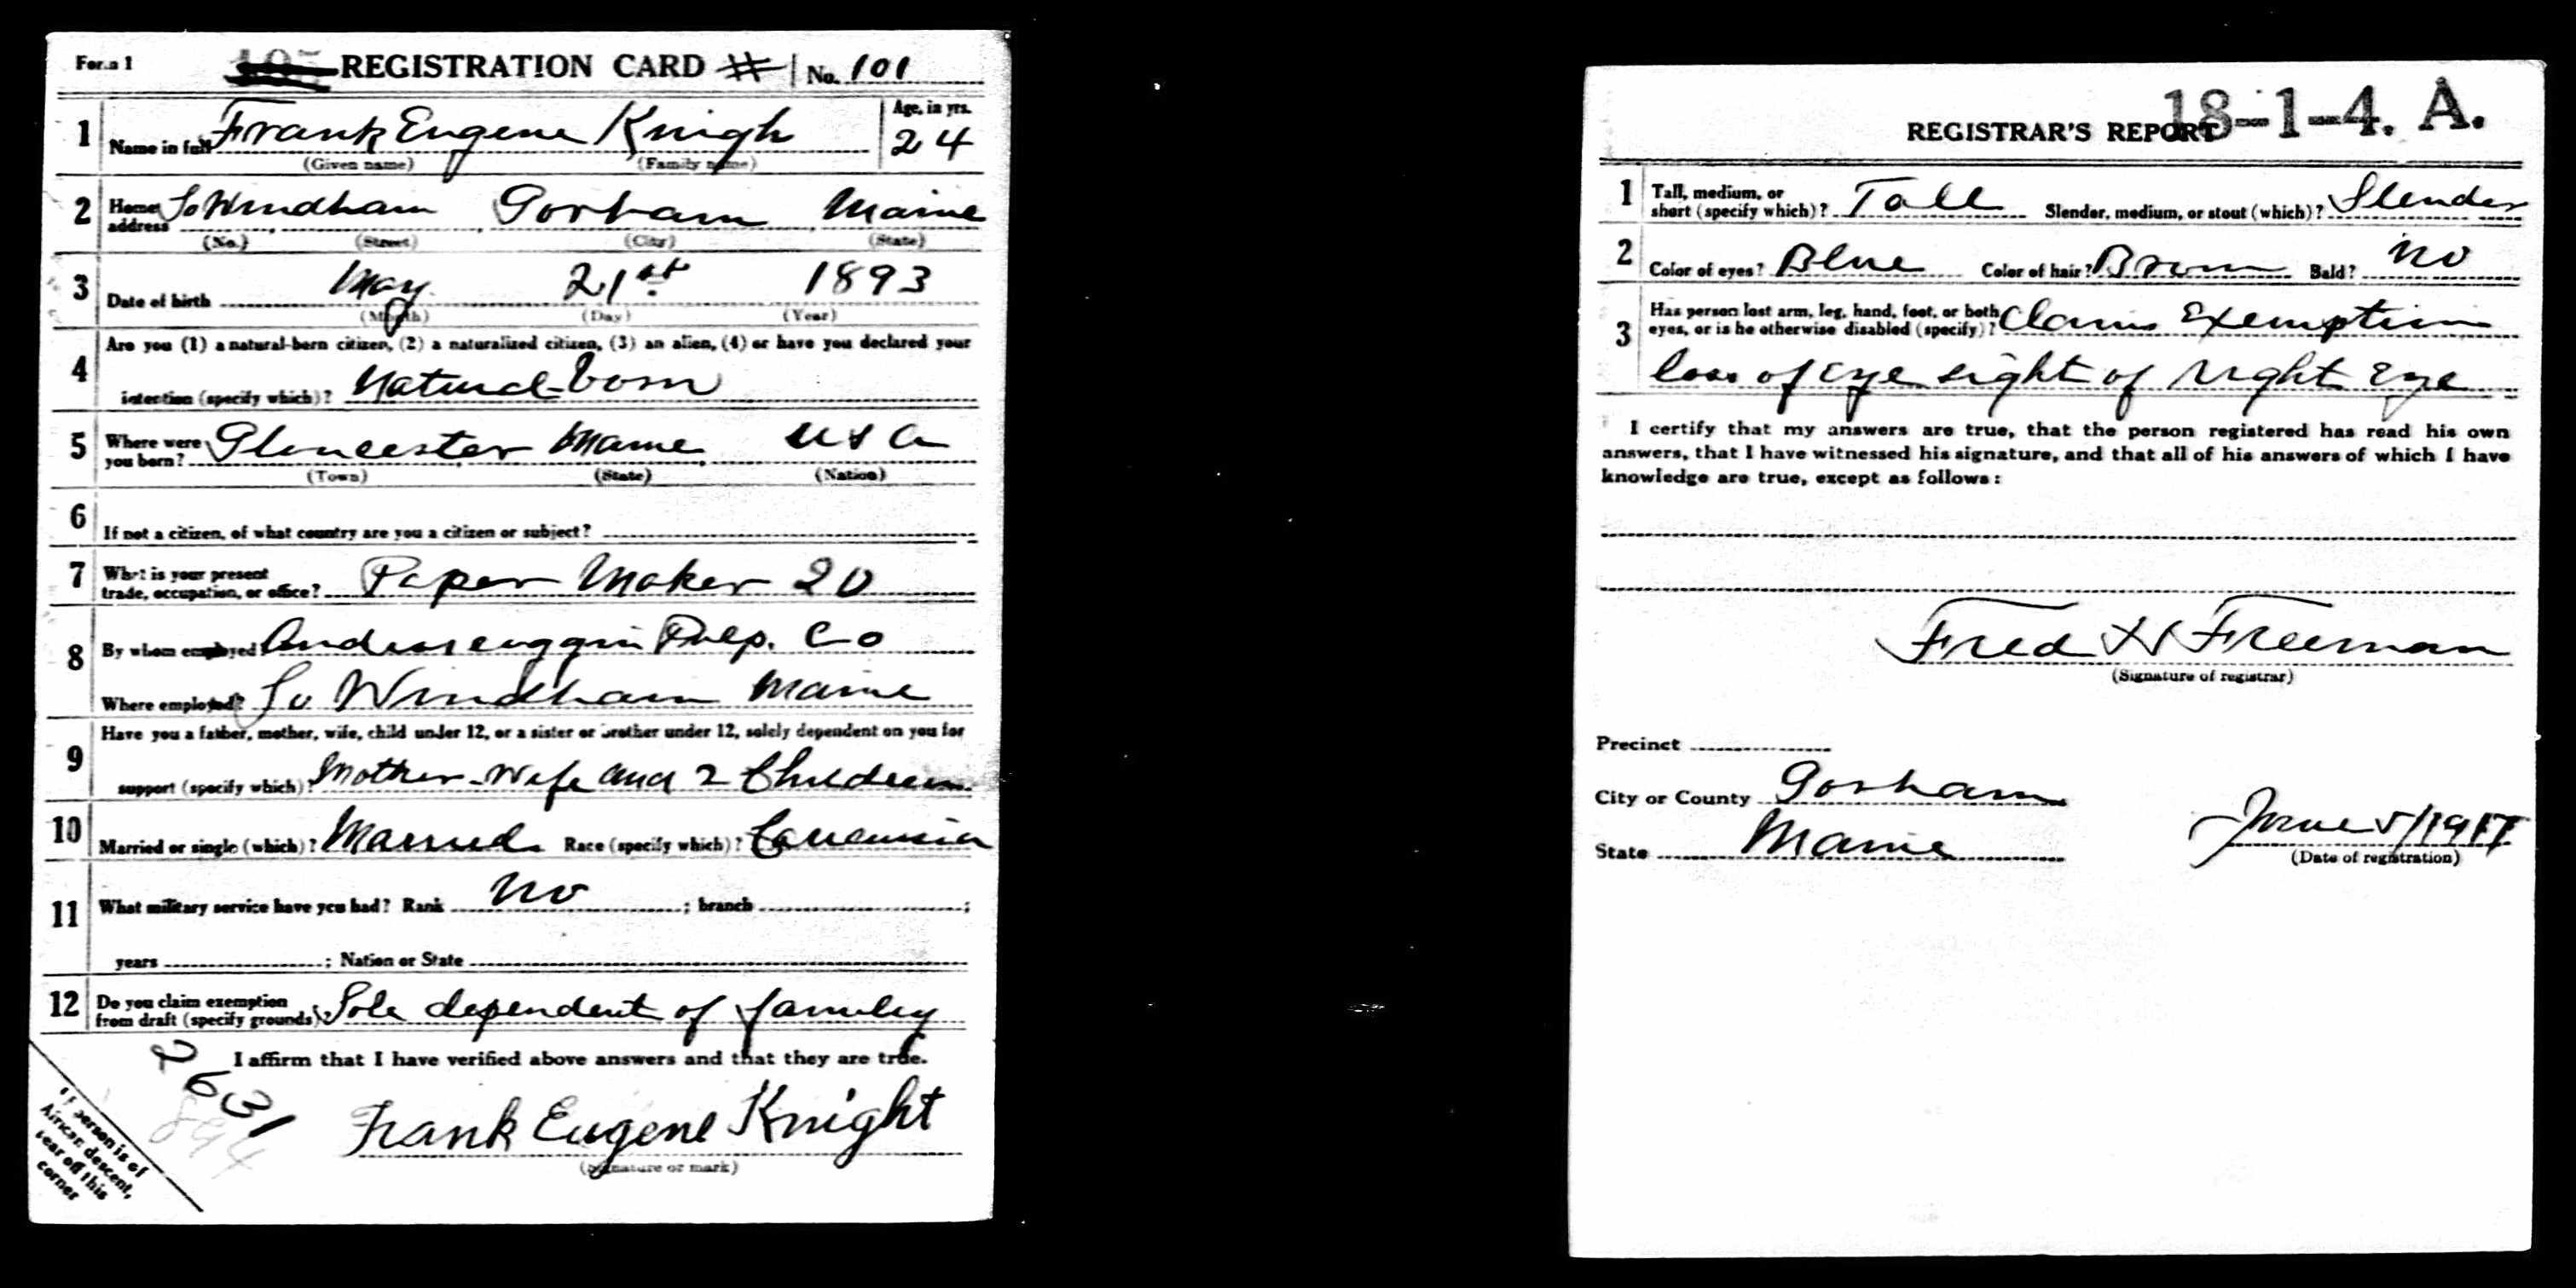 Form 1 REGISTRATION CARD # No. 101
1 Name in full Frank Eugene Knigh Age, in yrs. 24
(Given name) (Family name)
2 Home address So Windham Gorham Maine
(No.) (Street) (City) (State)
3 Date of birth May 21st 1893
(Month) (Day) (Year)
4 Are you (1) a natural-born citizen, (2) a naturalized citizen, (3) an alien, (4) or have you declared your
intention (specify which)? Natural-born
5 Where were you born? Gloucester Maine USA
(Town) (State) (Nation)
6 If not a citizen, of what country are you a citizen or subject?
7 What is your present trade, occupation, or office? Paper Maker 20
8 By whom employed? Androscoggin Pulp. Co
Where employed? So Windham Maine
9 Have you a father, mother, wife, child under 12, or a sister or brother under 12, solely dependent on you for
support (specify which)? Mother-Wife and 2 Children
10 Married or single (which)? Married Race (specify which)? Caucasian
11 What military service have you had? Rank no ; branch ;
years ; Nation or State
12 Do you claim exemption from draft (specify grounds)? Sole dependent of family
I affirm that I have verified above answers and that they are true.
2631
894
Frank Eugene Knight
(Signature or mark)
If person is of
African descent,
tear off this
corner
18-1-4. A.
REGISTRAR'S REPORT
1 Tall, medium, or short (specify which)? Tall Slender, medium, or stout (which)? Slender
2 Color of eyes? Blue Color of hair? Brown Bald? No
3 Has person lost arm, leg, hand, foot, or both eyes, or is he otherwise disabled (specify)? Claims Exemption
loss of eye sight of right Eye
I certify that my answers are true, that the person registered has read his own
answers, that I have witnessed his signature, and that all of his answers of which I have
knowledge are true, except as follows:
Fred H Freeman
(Signature of registrar)
Precinct
City or County Gorham
State Maine June 5/1917
(Date of registration)